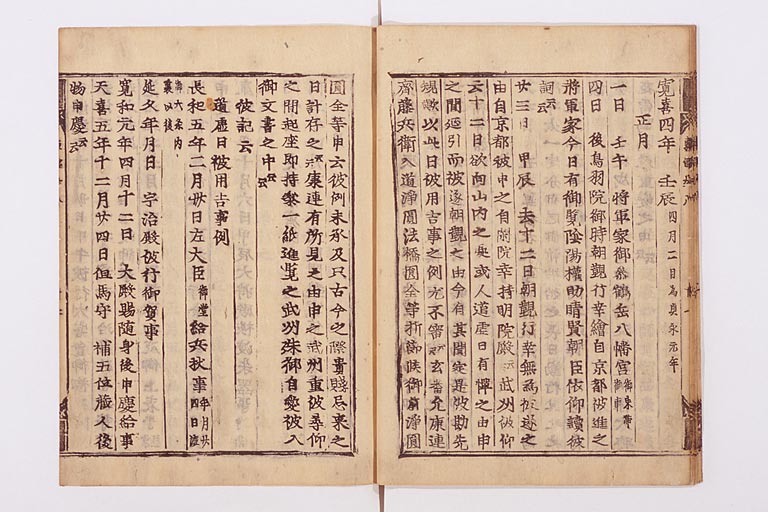 寛喜四年 壬辰 四月二日為貞永元年
正月
一日 壬午 将軍家御参鶴岳八幡宮 御束帯 御車
四日 後鳥羽院御時朝覲行幸繪自京都被進之
将軍家今日有御覧陰陽権助晴賢朝臣依仰讀彼
詞云云
廿三日 甲辰 去十二日朝覲行幸無為被遂之
由自京都被申之自
十二日欲向山内之處或人道虚日有憚之由申
之間延引而被遂朝覲之由今有其聞定是被勘先
規歟以此日被用古事之例尤不審之由玄番允康連
齊藤兵衛入道浄圓法橋圓全等
圓全等申云彼例未承及只古今之際貴賤忌来之
日計存之云云康連有所見之由申之武州重被尋仰
之間起座即持参一紙進覧之武州殊御自愛被入
御文書之中云云
彼記云
道虚日被用吉事例
長和五年二月廿日左大臣 御堂 給兵杖事
延久年月日 宇治殿被行御賀事
寛和元年四月十二日 大殿賜随身後申慶給事
天喜五年十二月廿四日但馬守 補五位蔵人後
始申慶云云